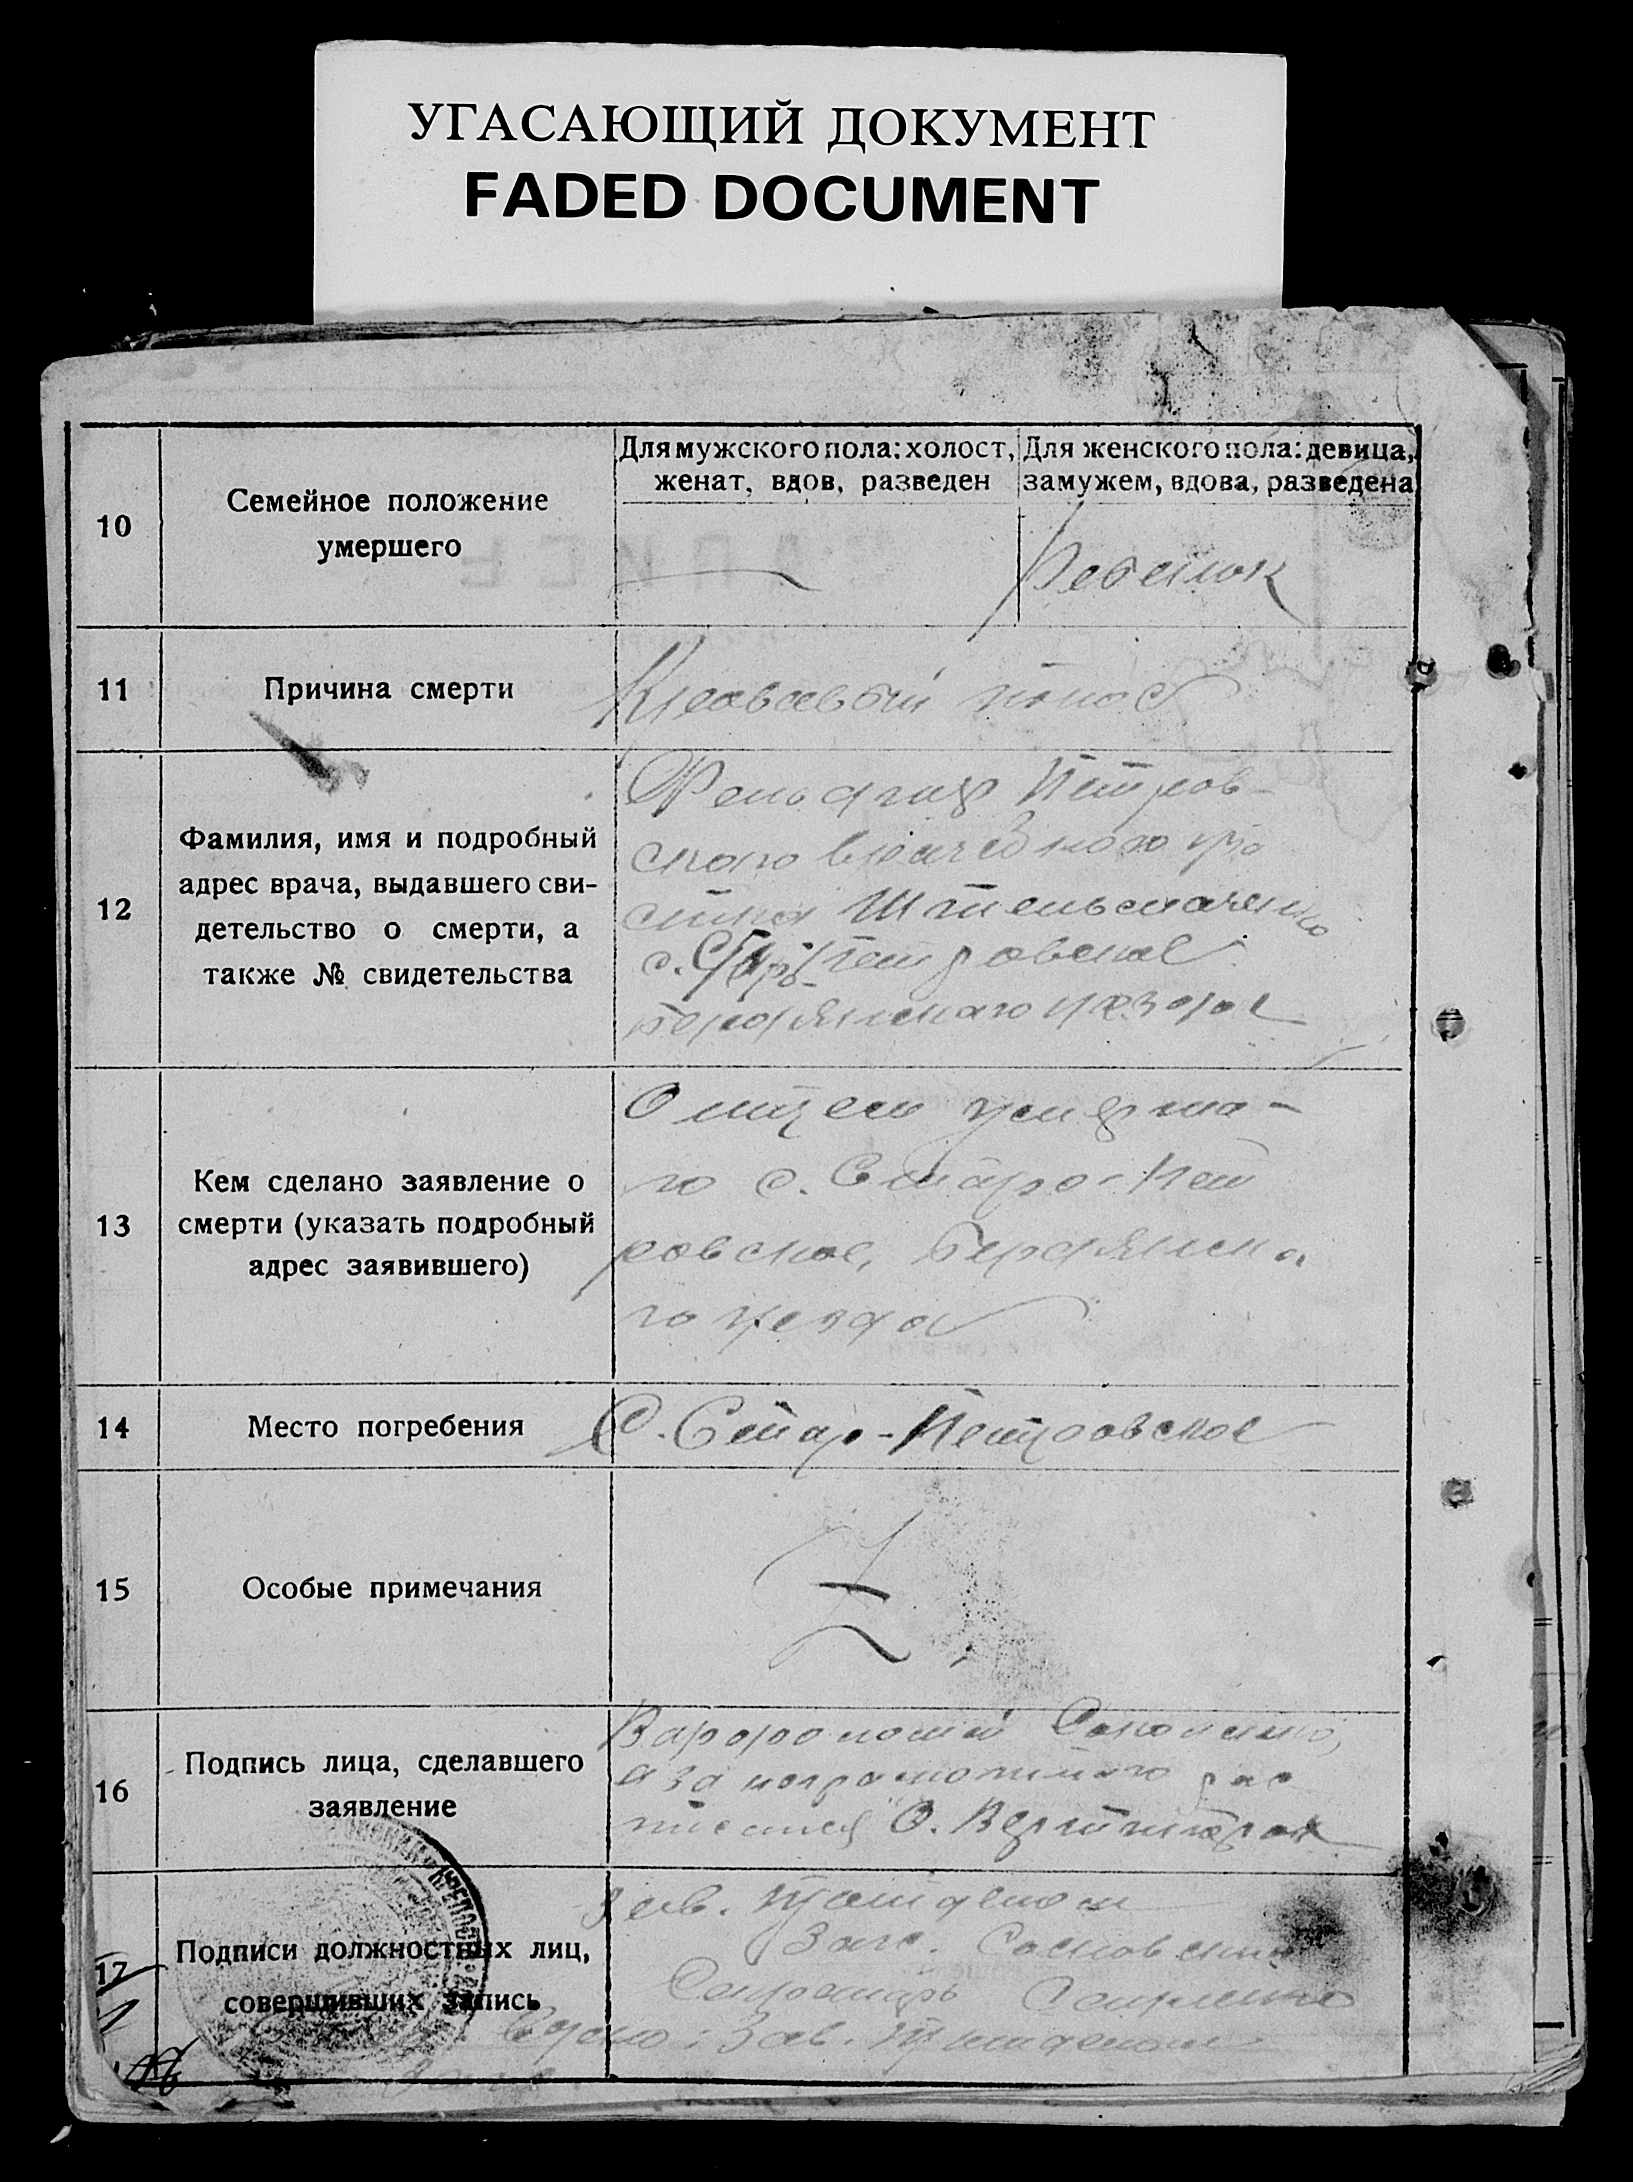 УГАСАЮЩИЙ ДОКУМЕНТ
FADED DOCUMENT
10
Семейное положение
умершего
Для мужского пола: холост,
женат, вдов, разведен
Для женского пола: девица,
замужем, вдова, разведена
Ребенок
11
Причина смерти
Кровавый понос
12
Фамилия, имя и подробный
адрес врача, выдавшего сви-
детельство о смерти, а
также № свидетельства
Фельдшер Петров-
ского врачебного уча
стка
с. Стар-Петровское
Бердянского уезда
13
Кем сделано заявление о
смерти (указать подробный
адрес заявившего)
Отцем умерша-
го с. Старо-Пет
ровское, Бердянска
го уезда
14
Место погребения
С. Стар-Петровское
15
Особые примечания
Z
16
Подпись лица, сделавшего
заявление
а за неграмотного рас
писался О.
17
Подписи должностных лиц,
совершивших запись
Зав. Подотделом
Загс. Сосновский
Секретарь
Верно: Зав. Подотделом